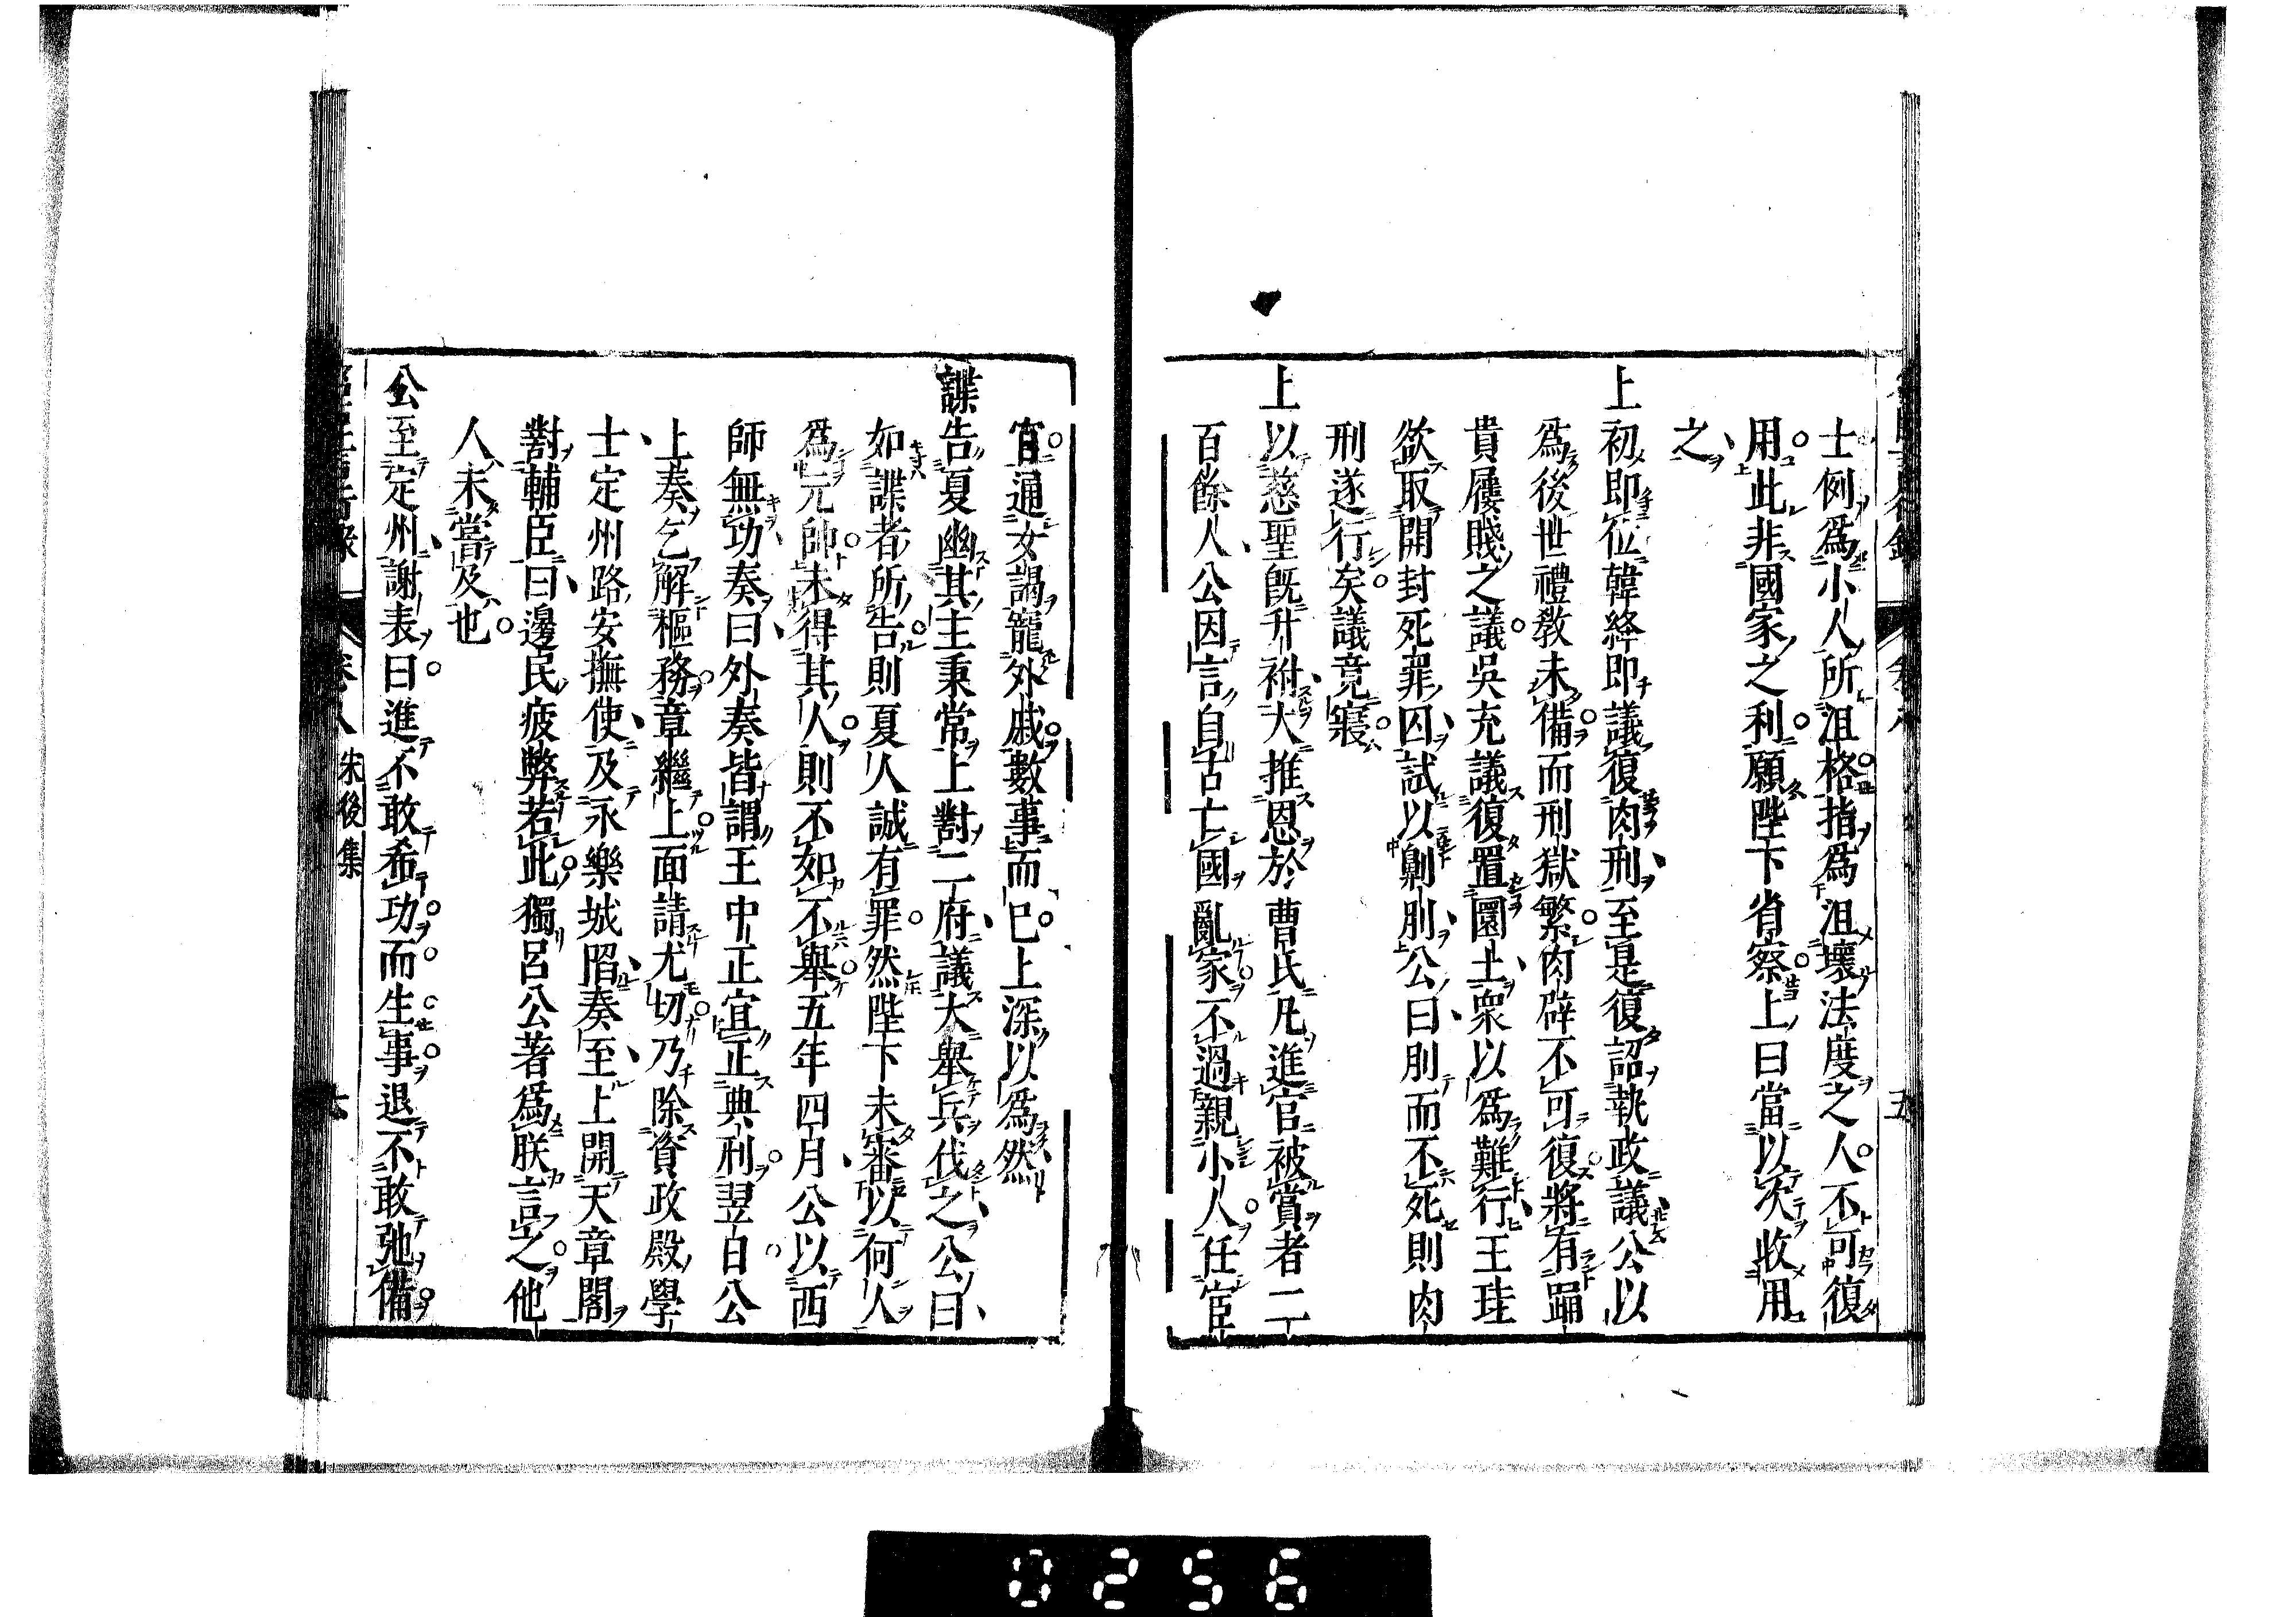 士例爲小人所沮格指爲沮壞法度之人不可復
用此非國家之利願陛下省察上曰當以次收用
之
上初即位韓絳即議復肉刑至是復詔執政議公以
爲後世禮敎未備而刑獄繁肉辟不可復將有踊
貴屨賤之議吳充議復置圜土衆以爲難行王珪
欲取開封死罪囚試以劓刖公曰刖而不死則肉
刑遂行矣議竟寢
上以慈聖旣升祔大推恩於曹氏凡進官被賞者二
百餘人公因言自古亡國亂家不過親小人任宦
官通女謁寵外戚數事而已上深以爲然
諜告夏幽其主秉常上對二府議大舉兵伐之公曰
如諜者所告則夏人誠有罪然陛下未審以何人
爲元帥未得其人則不如不舉五年四月公以西
師無功奏曰外奏皆謂王中正宜正典刑翌日公
上奏乞解樞務章繼上面請尤切乃除資政殿學
士定州路安撫使及永樂城陷奏至上開天章閣
對輔臣曰邊民疲弊若此獨呂公著爲朕言之他
人未嘗及也
公至定州謝表曰進不敢希功而生事退不敢弛備
卷八 朱後集
0256